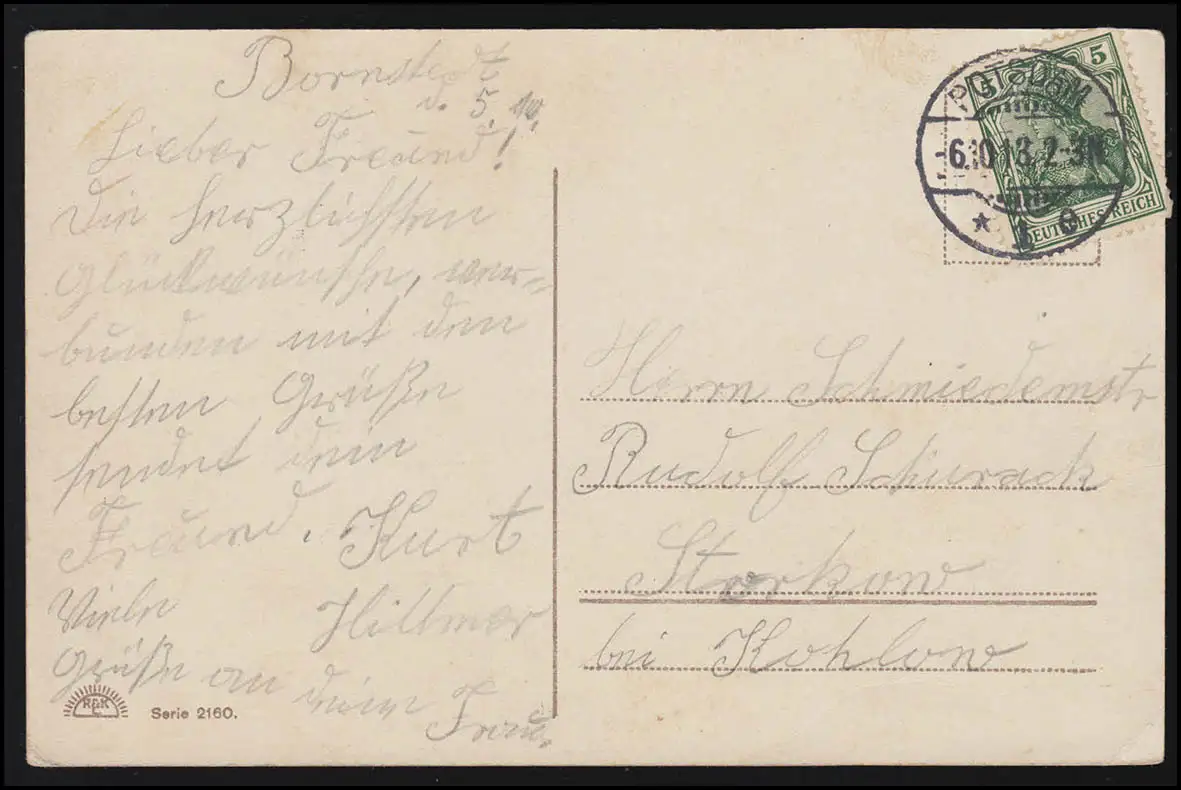 Bornstedt
d. 5. 10.
Lieber Freund!
Die herzlichsten
Glückwünsche, ver-
bunden mit den
besten Grüße
sendet dein
Freund. Kurt
Hillmer
Viele
Grüße an
deine
Frau.
R&K
L
Serie 2160.
5
DEUTSCHES REICH
POTSDAM
6.10.13. 2-3N
* 1 e
Herrn Schmiedemstr
Rudolf Schurack
Storkow
bei Kohlow